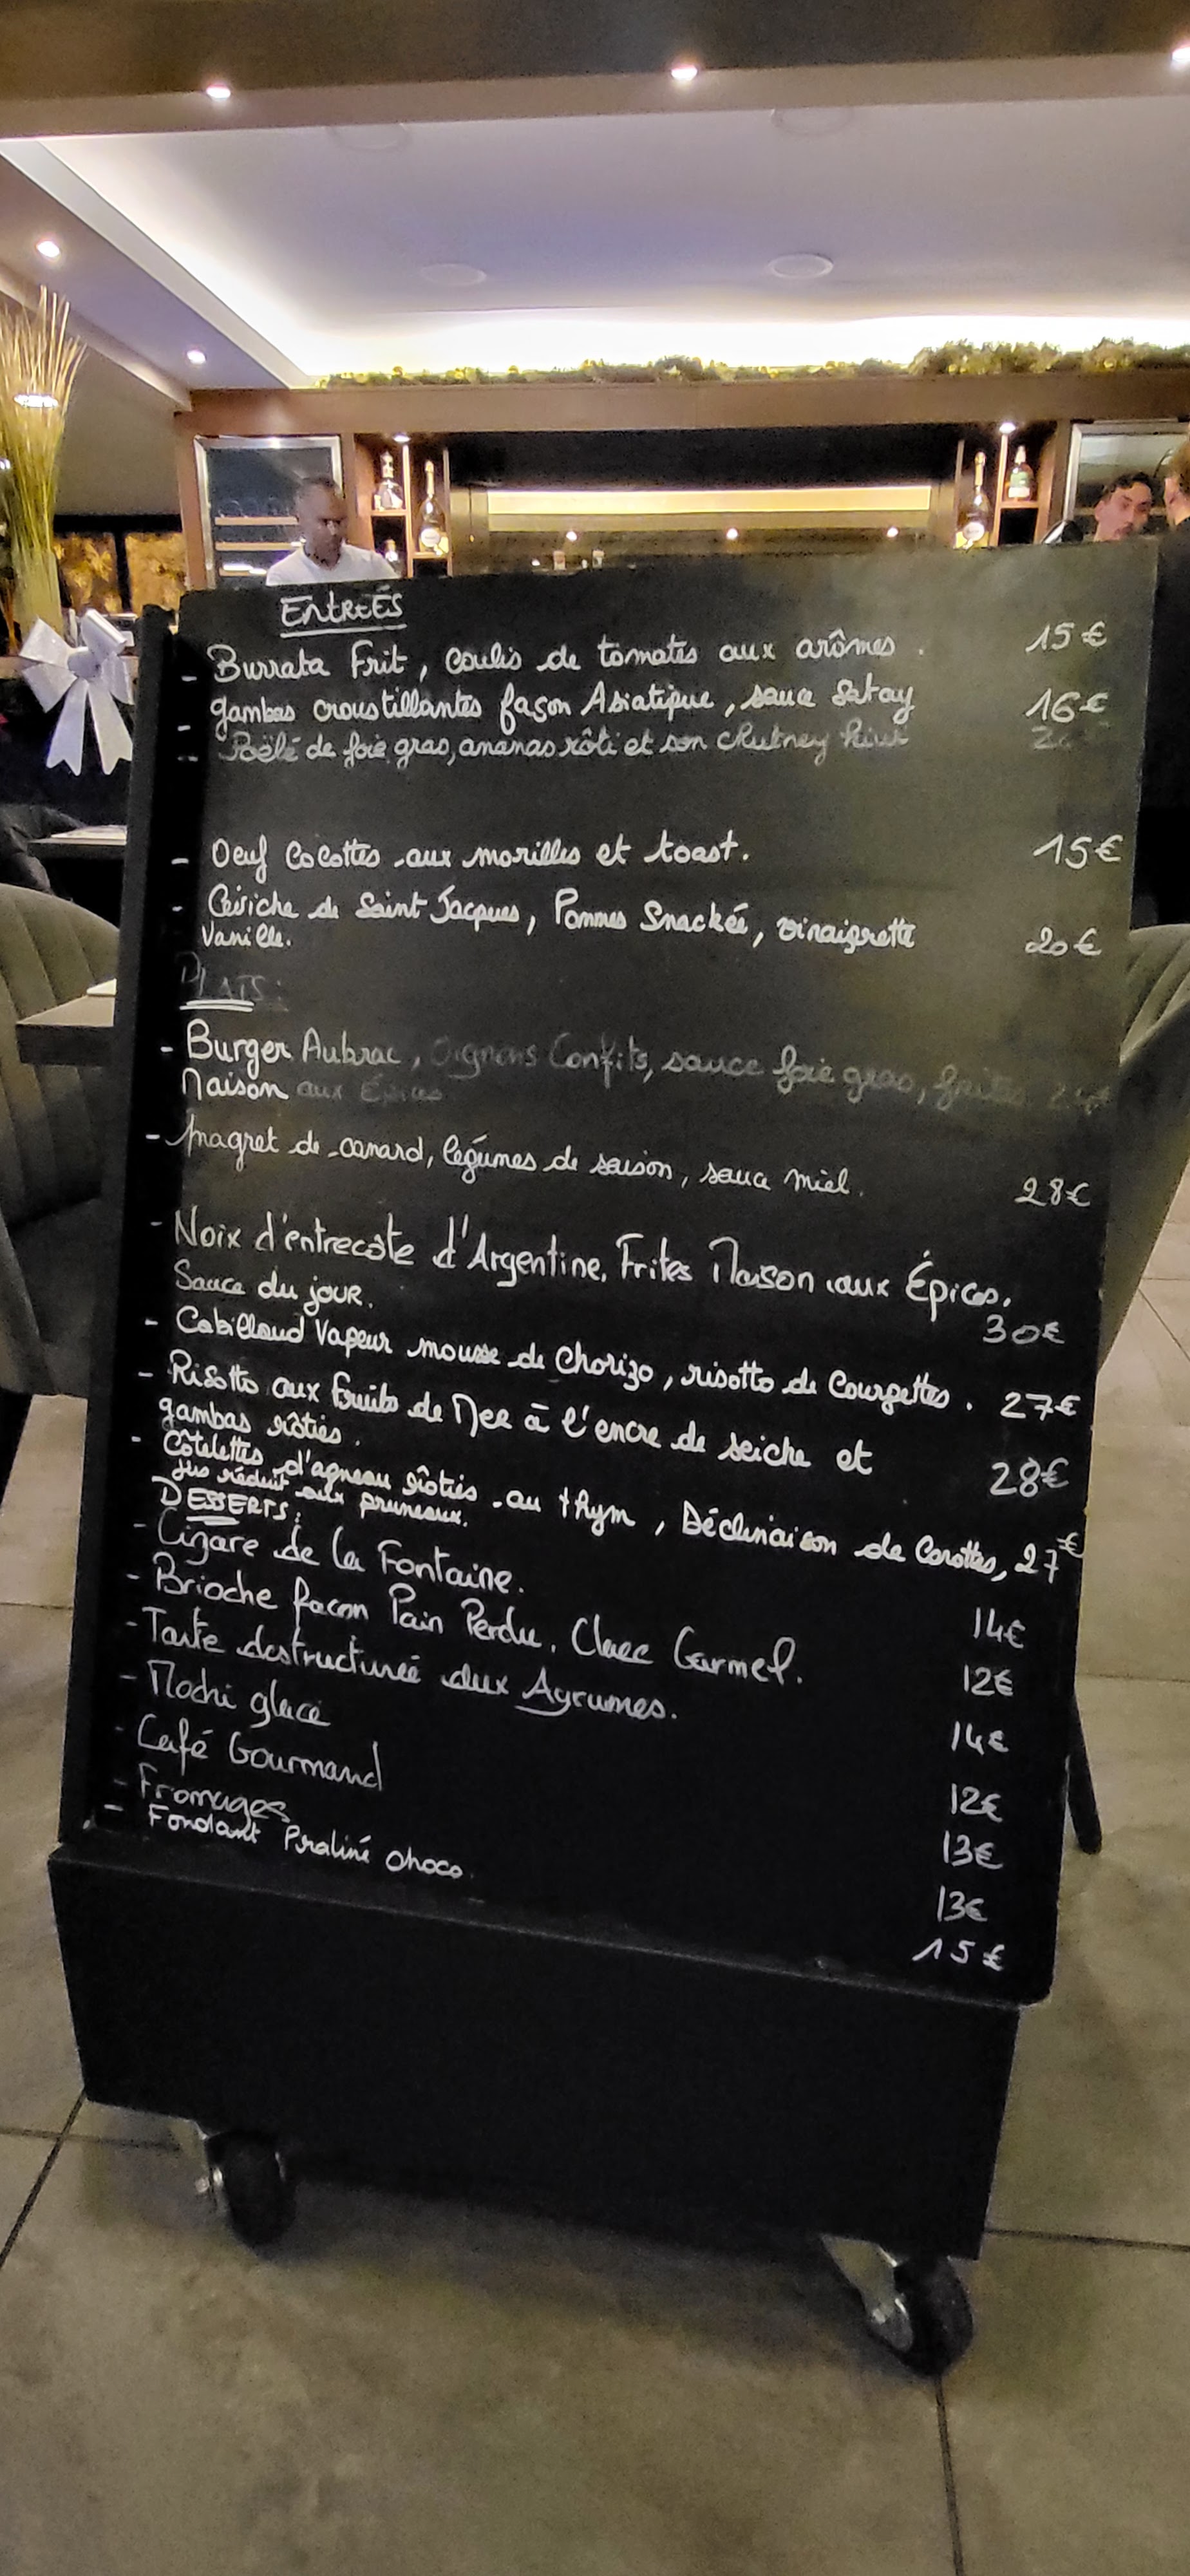 ENTREÉS
- Burrata Frit, coulis de tomates aux arômes. 15€
- gambas croustillantes façon Asiatique, sauce Satay 16€
- Poêlé de foie gras, ananas rôti et son chutney kiwi
- Oeuf Cocottes aux morilles et toast. 15€
- Céviche de Saint Jacques, Pommes Snackée, vinaigrette
Vanille. 20€
PLATS:
- Burger Aubrac, Oignons Confits, sauce foie gras, frites
Maison aux Épices
- magret de canard, légumes de saison, sauce miel. 28€
- Noix d'entrecôte d'Argentine, Frites Maison aux Épices.
Sauce du jour. 30€
- Cabillaud Vapeur mousse de Chorizo, risotto de Courgettes. 27€
- Risotto aux fruits de Mer à l'encre de seiche et
gambas rôties. 28€
- Côtelettes d'agneau rôties au thym, Déclinaison de Carottes, 27€
Jus réduit aux pruneaux.
DESSERTS:
- Cigare de la Fontaine. 14€
- Brioche façon Pain Perdu, Glace Carmel. 12€
- Tarte destructurée aux Agrumes. 14€
- Mochi glacé 12€
- Café Gourmand 13€
- Fromages 13€
- Fondant Praliné choco. 15€